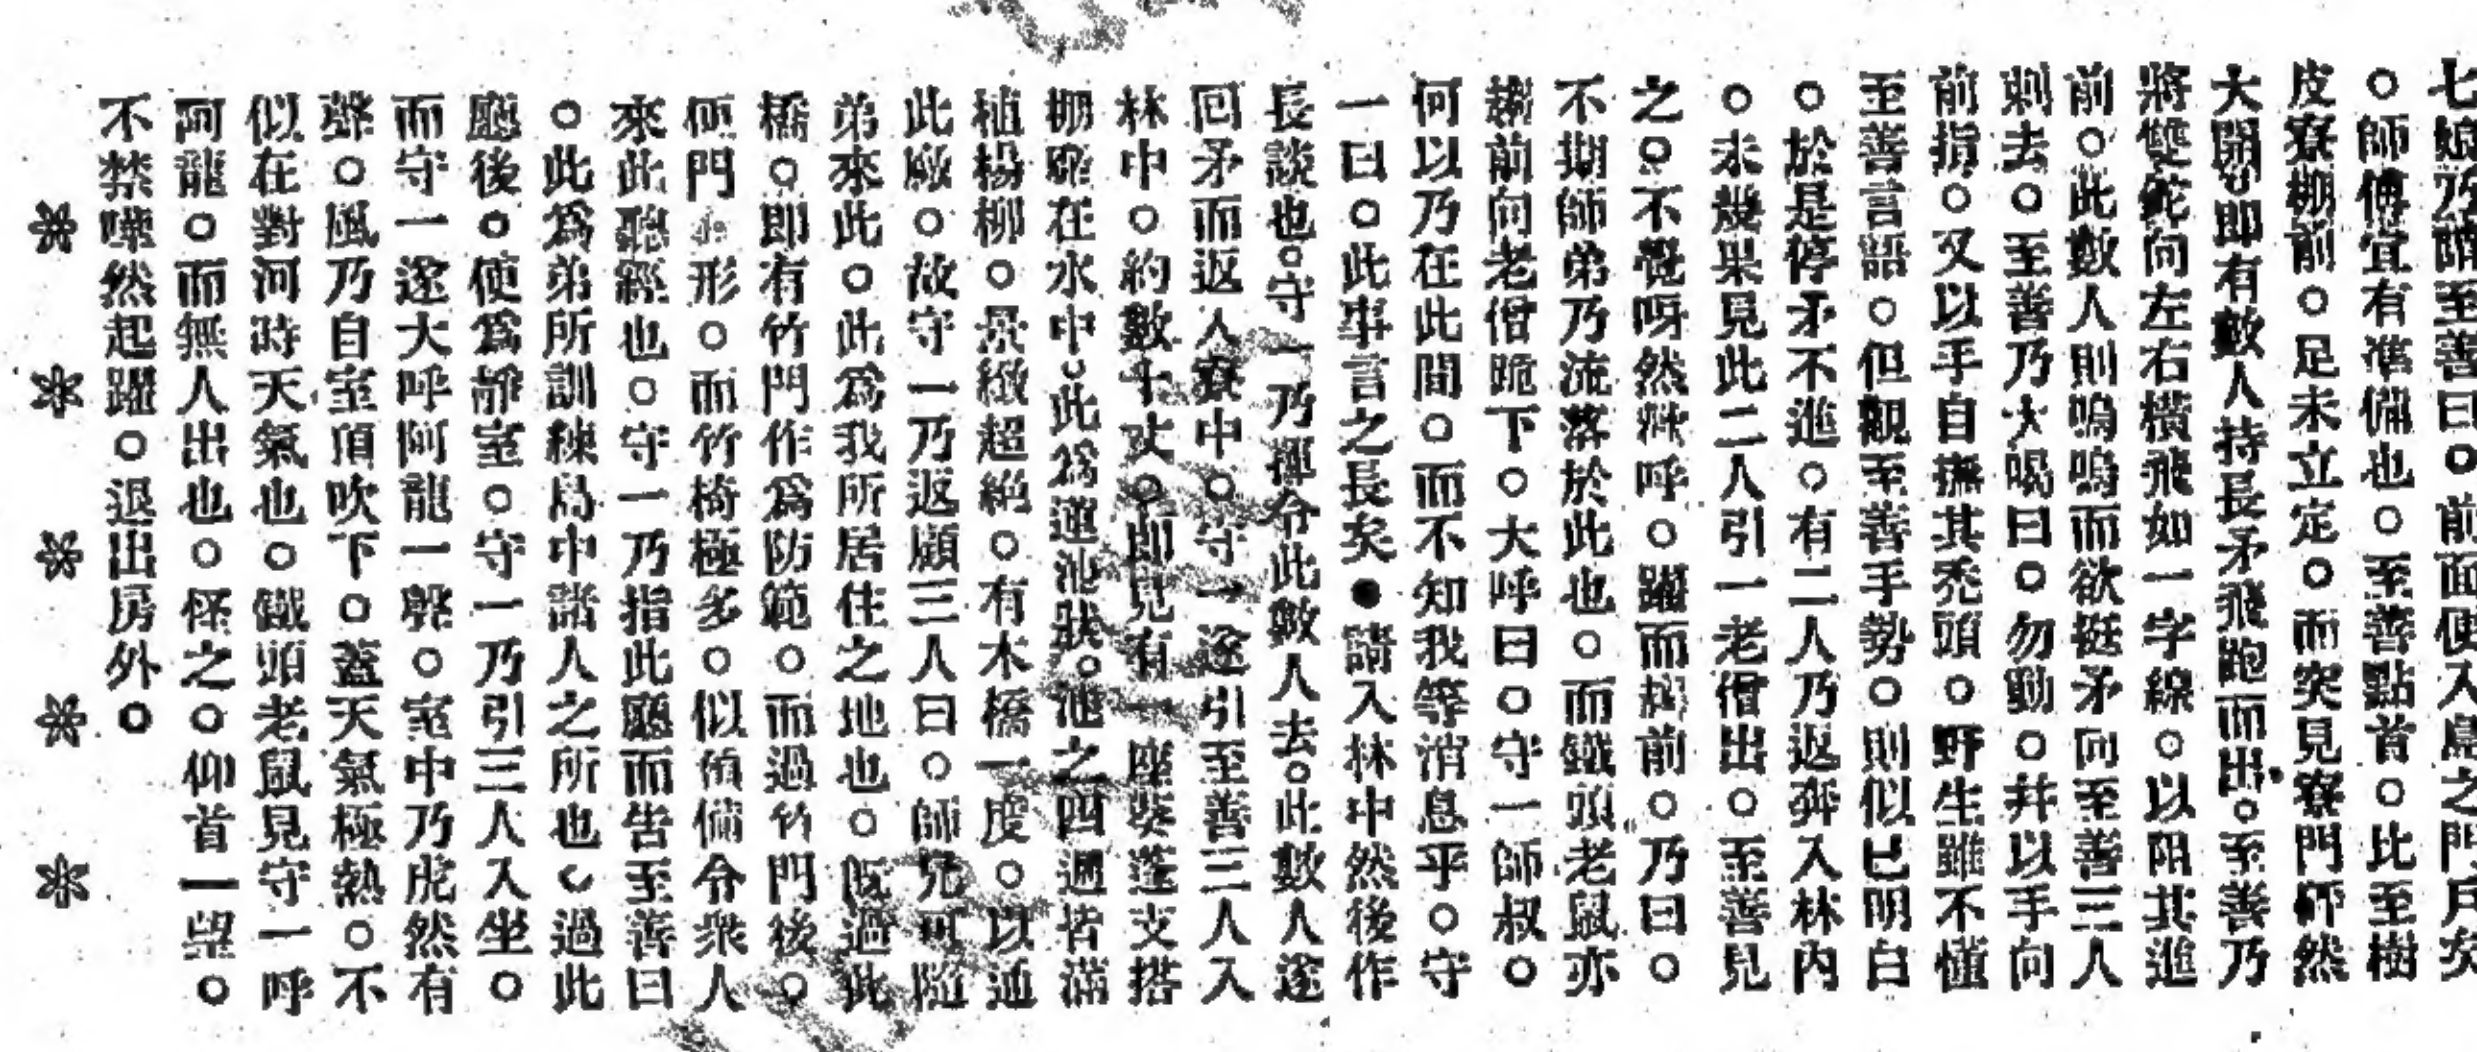 七娘乃謂至善曰。前面便入島之門戶矣
。師傅宜有準備也。至善點首。比至樹
皮寮棚前。足未立定。而突見寮門砰然
大開。即有數人持長矛飛跑而出。至善乃
將雙鉈向左右橫飛如一字線。以阻其進
前。此數人則嗚嗚而欲挺矛向至善三人
刺去。至善乃大喝曰。勿動。并以手向
前指。又以手自撫其禿頭。野生雖不懂
至善言語。但觀至善手勢。則似已明白
。於是停矛不進。有二人乃返奔入林內
。未幾果見此二人引一老僧出。至善見
之。不覺呀然歡呼。躍而趨前。乃曰。
不期師弟乃流落於此也。而鐵頭老鼠亦
趨前向老僧跪下。大呼曰。守一師叔。
何以乃在此間。而不知我等消息乎。守
一曰。此事言之長矣。請入林中然後作
長談也。守一乃揮令此數人去。此數人遂
回矛而返入寮中。守一遂引至善三人入
林中。約數十丈。即見有一座葵蓬支搭
棚廠在水中。此為蓮池狀。池之四週皆滿
植楊柳。景緻超絶。有木橋一度。以通
此廠。故守一乃返顧三人曰。師兄可隨
弟來此。此為我所居住之地也。既過此
橋。即有竹門作為防範。而過竹門後。
便門形。而竹椅極多。似預備令衆人
來此聽經也。守一乃指此廳而告至善曰
。此為弟所訓練島中諸人之所也。過此
廳後。便為靜室。守一乃引三人入坐。
而守一遂大呼阿龍一聲。室中乃虎然有
聲。風乃自室頂吹下。蓋天氣極熱。不
似在對河時天氣也。鐵頭老鼠見守一呼
阿龍。而無人出也。怪之。仰首一望。
不禁嘩然起躍。退出房外。
＊　＊　＊　＊　＊